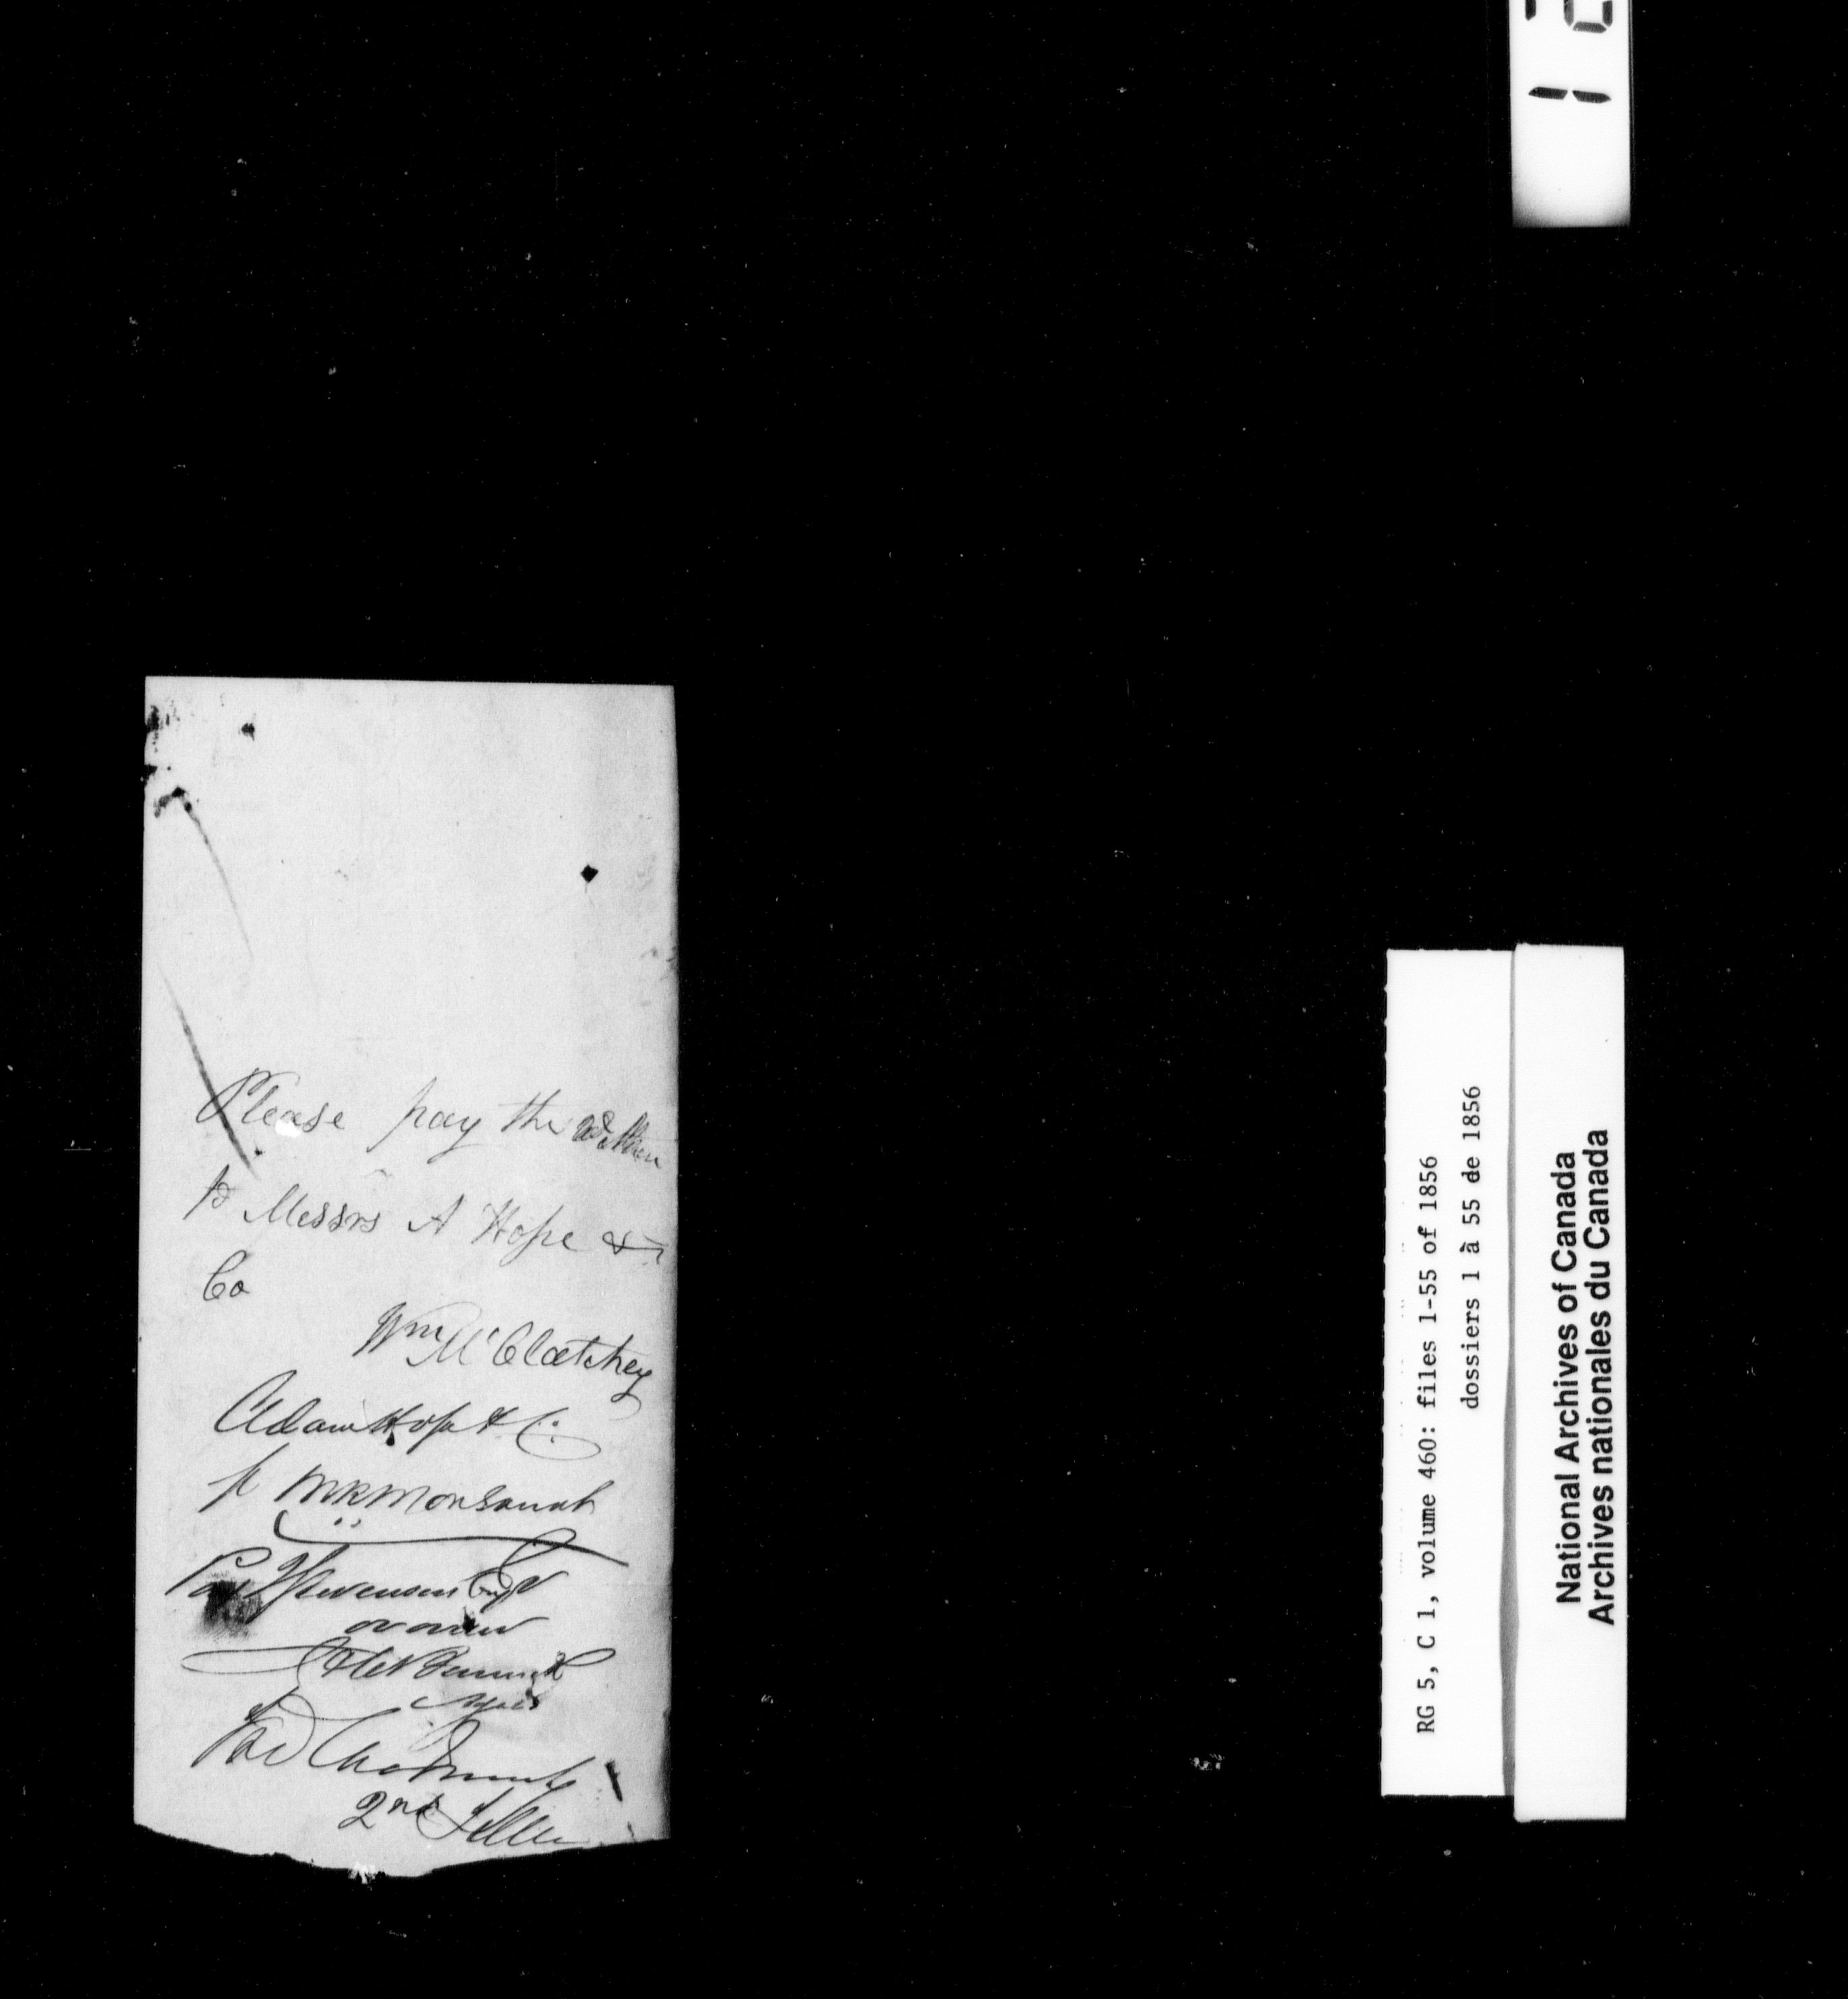 Please pay the within
to Messrs A Hope &
Co
Wm McClatchey
Adam Hope & Co
p
Pay Stevenson
or order
2nd Teller
RG 5, C 1, volume 460: files 1-55 of 1856
dossiers 1 à 55 de 1856
National Archives of Canada
Archives nationales du Canada